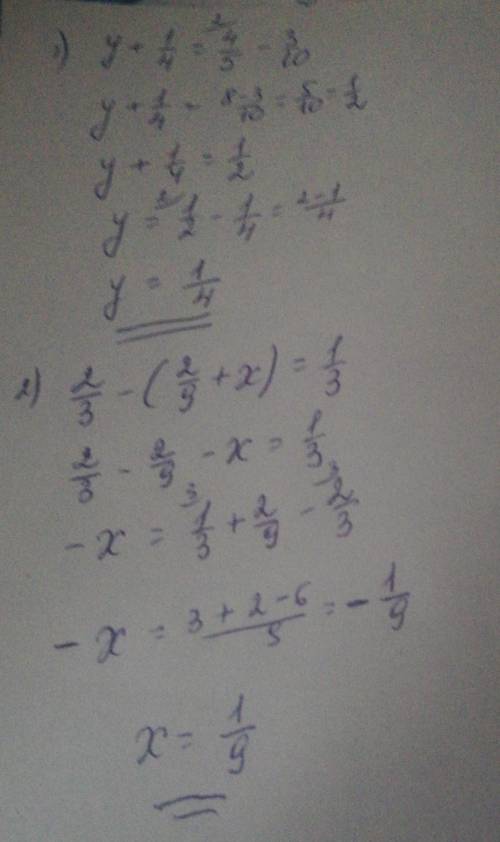 1) y + 1/4 = 4/5 - 3/10 (2 above 4/5)
y + 1/4 - 8-3/10 = 5/10 = 1/2
y + 1/4 = 1/2
y = 1/2 - 1/4 = 2-1/4
y = 1/4
2) 2/3 - (2/9 + x) = 1/3
2/3 - 2/9 - x = 1/3
- x = 1/3 + 2/9 - 2/3
- x = 3+2-6/9 = - 1/9
x = 1/9